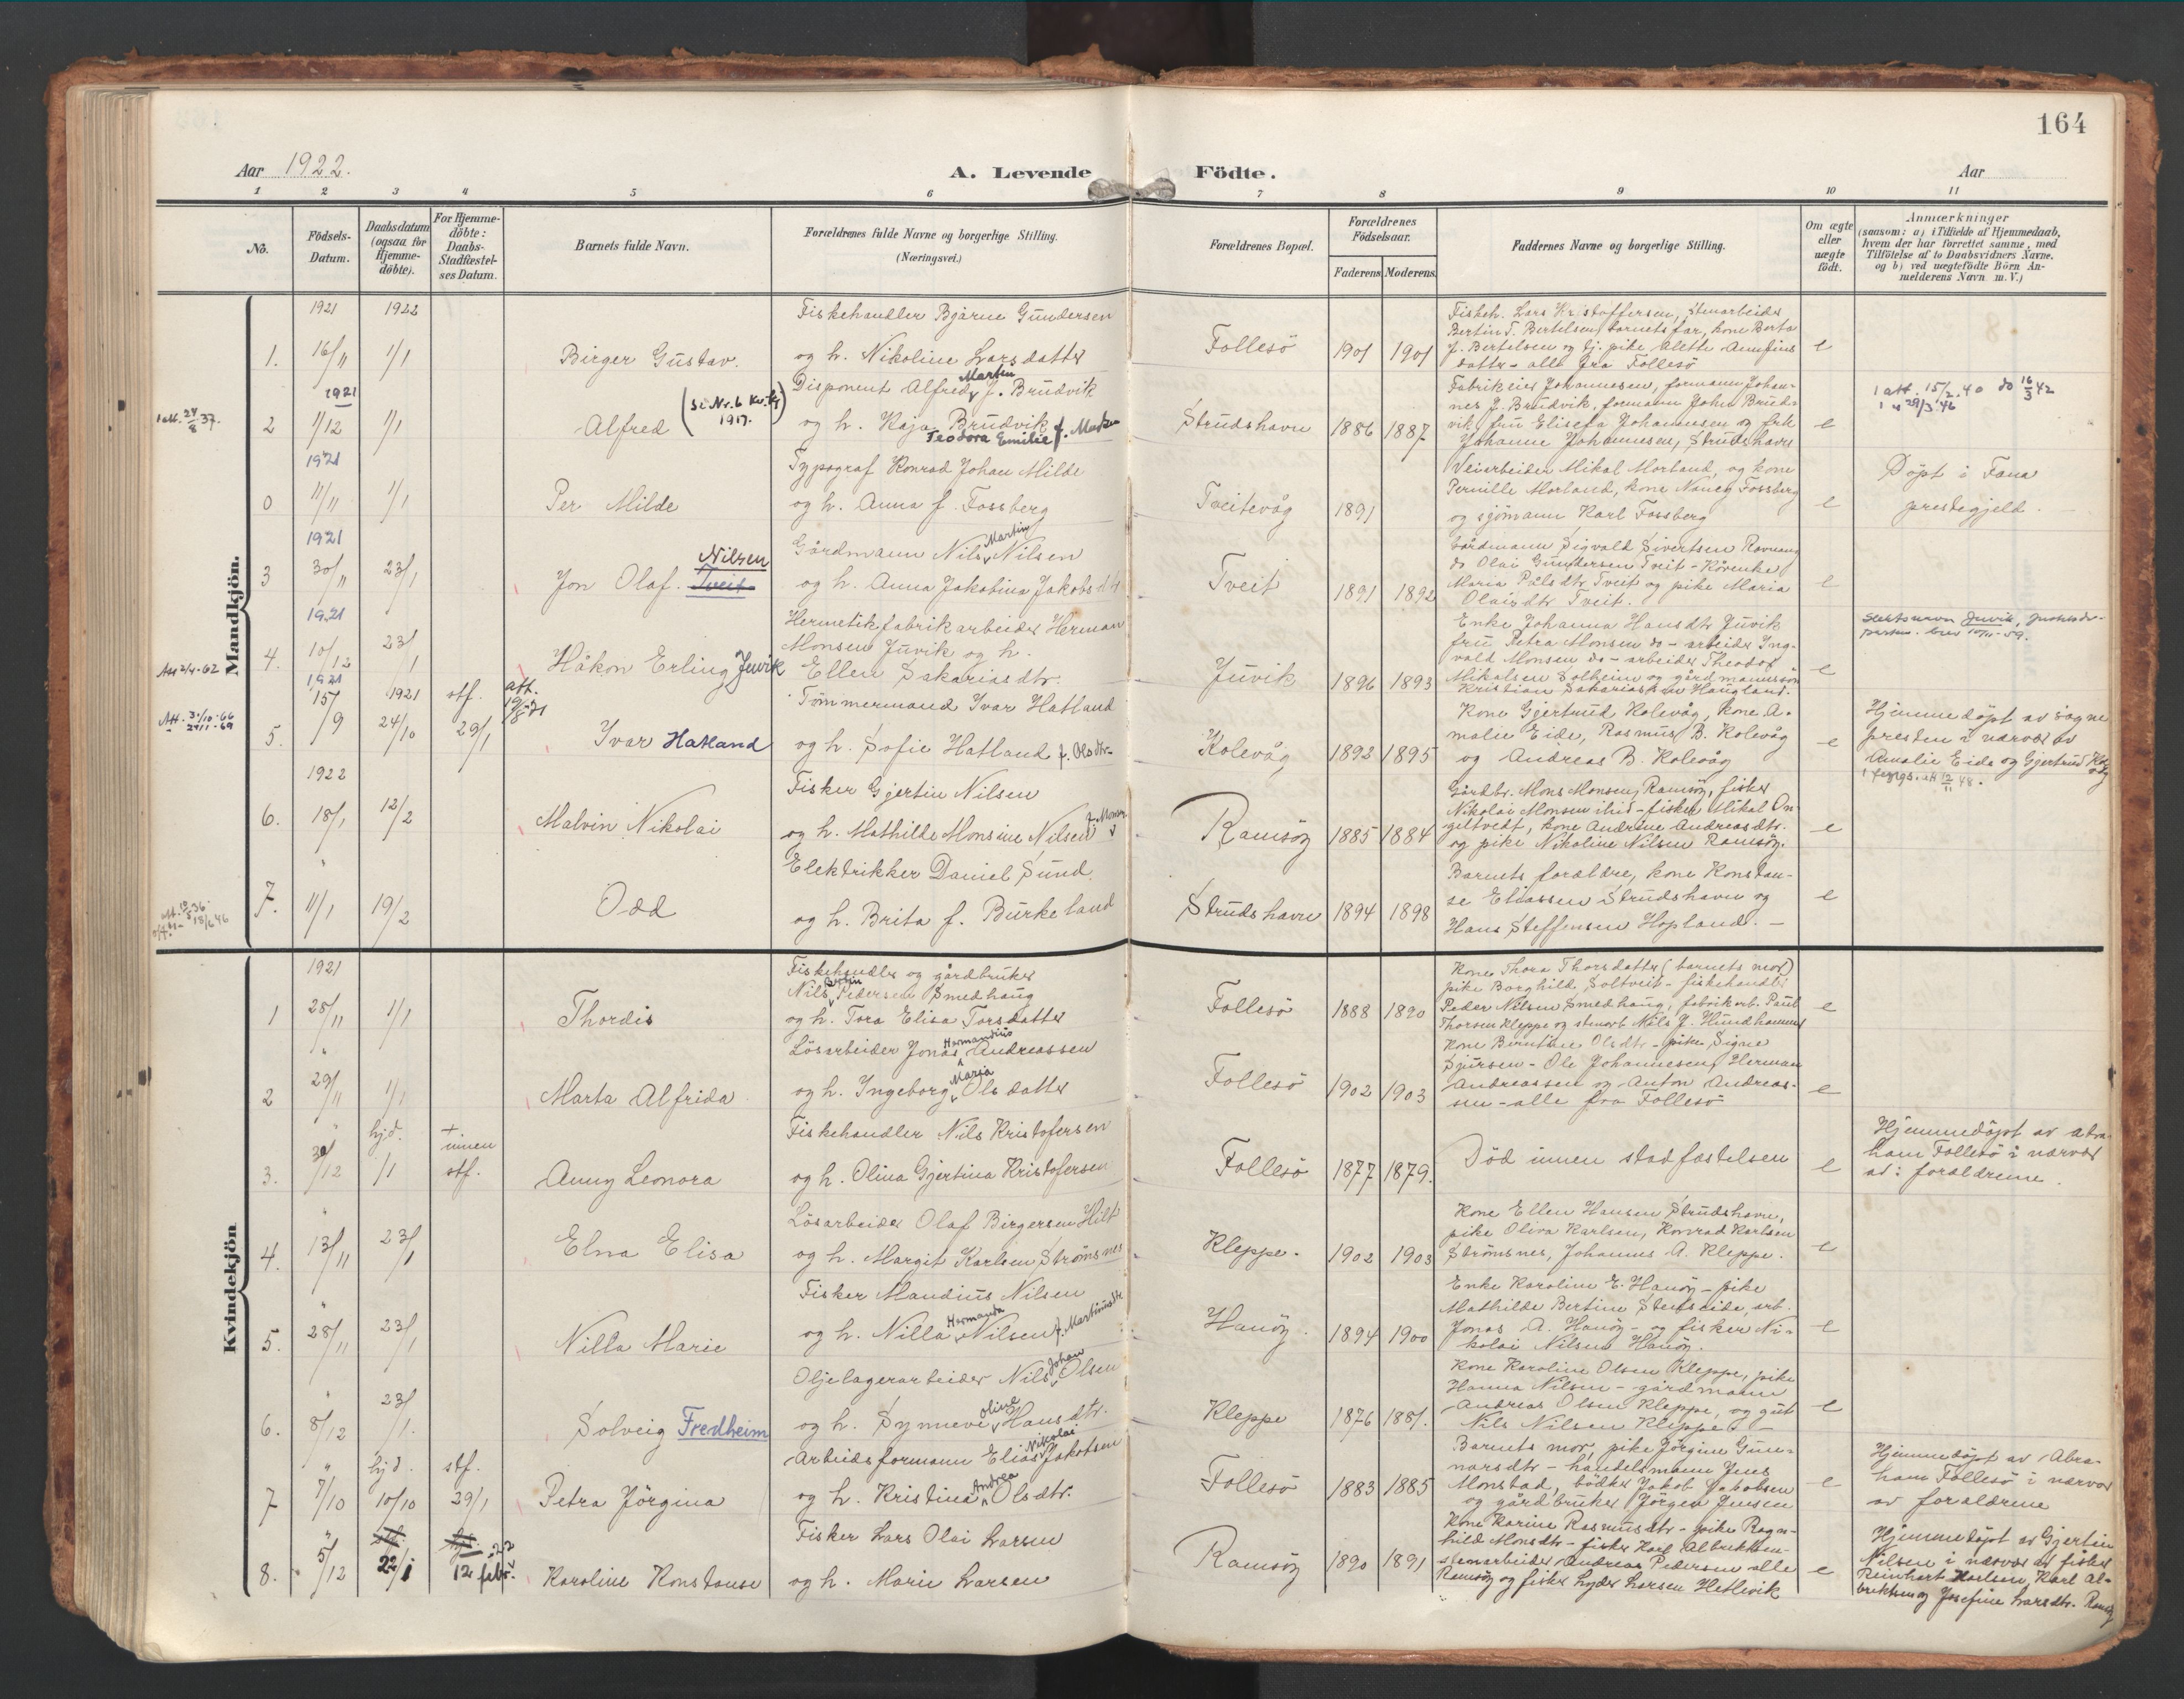 164
Aar 1922.
A. Levende Födte.
Aar
1 2 3 4 5 6 7 8 9 10 11
No.
Födsels-Datum.
Daabsdatum (ogsaa for Hjemmedöbte).
For Hjemmedöbte: Daabs-Stadfæstelses Datum.
Barnets fulde Navn.
Forældrenes fulde Navne og borgerlige Stilling.
(Næringsvei.)
Forældrenes Bopæl.
Forældrenes Födselsaar.
Faderens. Moderens.
Faddernes Navne og borgerlige Stilling.
Om ægte eller uægte födt.
Anmærkninger
(saasom: a) i Tilfælde af Hjemmedaab,
hvem der har forrettet samme, med
Tilföielse af to Daabsvidners Navne,
og b) ved uægtefödte Börn Anmelderens Navn m. V.)
Mandkjön.
1921 1922
1. 16/11 1/1 Birger Gustav.
Fiskehandler Bjarne Gundersen
og h. Nikoline Larsdatter
Follesö 1901 1901
Fiskeh. Lars Kristoffersen, stenarbeider
Bertin T. Bertelsen, barnets far, kone Berta
J. Bertelsen og tj. pike Alette Arnfins
datter - alle fra Follesö
e
1 att. 24/8 37.
1921
2 1/12 1/1 Alfred (se Nr. 6 Kv. kj 1917.)
Disponent Alfred Martin J. Brudvik
og h. Kaja Teodora Emilie Brudvik f.
Strudshavn 1886 1887
Fabrikeier Johannesen, formann Johannes
J. Brudvik, formann John Brudvik,
fru Elisefa Johannesen og frk
Johanne Johannesen, Strudshavn
e
1 att. 15/2.40 do 16/3 42
1 " 29/3.46
1921
0 11/11 1/1 Per Milde
Typograf Konrad Johan Milde
og h. Anna f. Fossberg
Tveitevåg 1891
Veiarbeider Mikal Morland, og kone
Pernille Morland, kone Nancy Fossberg
og sjömann Karl Fossberg
e
Döpt i Fana
prestegjeld.
1921
3 30/11 23/1 Jon Olaf. Tveit Nilsen
Gårdmann Nils Martin Nilsen
og h. Anna Jakobina Jakobsdtr
Tveit 1891 1892
Gårdmann Sigvald Sivertsen Ravnang
do Olai Gundersen Tveit -
Maria Pålsdtr Tveit og pike Maria
Olaisdtr Tveit.
e
1921
4. 10/12 23/1 Håkon Erling Juvik
Hermetikfabrikarbeider Herman
Monsen Juvik og h.
Ellen Sakariasdtr.
Juvik 1896 1893
Enke Johanna Hansdtr Juvik
fru Petra Monsen do - arbeider Ingvald
Monsen do - arbeider Theodor
Mikalsen Solheim og gårdmannssön
Kristian Sakariassen Haugland.
e
Slektsnavn Juvik,
1921 1921 stf.
5. 15/9 24/10 29/1 Ivar Hatland
Tömmermand Ivar Hatland
og h. Sofie Hatland f. Olsdtr.
Kolevåg 1892 1895
Kone Gjertrud Kolevåg, kone Amalie
Eide, Rasmus B. Kolevåg
og Andreas B. Kolevåg
e
Hjemmedöpt av sogne
presten i nærvær av
Amalie Eide og Gjertrud Kolevåg
1922
6. 18/1 12/2 Malvin Nikolai
Fisker Gjertin Nilsen
og h. Mathilde Monsine Nilsen f. Monsen
Ramsöy 1885 1884
Gårdbr. Mons Monsen, Ramsöy, fisker
Nikolai Monsen ibid - fisker Mikal Ongeltvedt,
kone Andrine Andreasdtr.
og pike Nikoline Nilsen Ramsöy.
e
"
7. 11/1 19/2 Odd
Elektrikker Daniel Sund
og h. Brita f. Burkeland
Strudshavn 1894 1898
Barnets forældre, kone Konstanse
Eliassen Strudshavn og
Hans Steffensen Hopland. -
e
Kvindekjön
1921
1 28/11 1/1 Thordis
Fiskehandler og gårdbruker
Nils Pedersen Smedhaug
og h. Tora Elisa Torsdatter
Follesö 1888 1890
Kone Thora Thorsdatter (barnets mor)
pike Borghild Soltveit - fiskehandler
Peder Nilsen Smedhaug, fabrikarb. Paul
Thorsen Kleppe og stenarb Nils J. Hundhammer
e
"
2 29/11 1/1 Marta Alfrida
Lösarbeider Jonas Hermandius Andreassen
og h. Ingeborg Maria Olsdatter
Follesö 1902 1903
Kone Berntine Olsdtr - pike Signe
Sjursen - Ole Johannesen, Herman
Andreassen og Anton Andreassen
- alle fra Follesö
e
" hjd. + innen
3. 30/12 /1 stf. Anny Leonora
Fiskehandler Nils Kristofersen
og h. Olina Gjertina Kristofersen
Follesö 1877 1879.
Död innen stadfæstelsen
e
Hjemmedöpt av Abraham
Follesö i nærvær
av: forældrene.
"
4. 13/11 23/1 Elna Elisa
Lösarbeider Olaf Birgersen Hilt
og h. Margit Karlsen Strömsnes
Kleppe. 1902 1903
Kone Ellen Hansen Strudshavn,
pike Oliva Karlsen, Konrad Karlsen
Strömsnes, Johannes A. Kleppe.
e
"
5. 28/11 23/1 Nilla Marie
Fisker Mandius Nilsen
og h. Nilla Hermanda Nilsen f. Martinusdtr
Hanöy. 1894 1900
Enke Karoline E. Hanöy - pike
Mathilde Bertine Steiseide, arb.
Jonas A. Hanöy - og fisker Nikolai
Nilsen Hanöy.
e
"
6. 8/12 23/1. Solveig Fredheim
Oljelagerarbeider Nils Johan Olsen
og h. Synneve Oline Hansdtr.
Kleppe 1876 1881.
Kone Karoline Olsen Kleppe, pike
Hanna Nilsen - gårdmann
Andreas Olsen Kleppe, og gut
Nils Nilsen Kleppe. -
e
" hjd. stf.
7 7/10 10/10 29/1 Petra Jörgina
Arbeidsformann Elias Nikolai Jakobsen
og h. Kristina Andrea Olsdtr.
Follesö 1883 1885
Barnets mor, pike Jörgine Gunnarsdtr
- handelsmann Jens
Monstad, bödker Jakob Jakobsen
og gårdbruker Jörgen Jensen
e
Hjemmedöpt av Abraham
Follesö i nærvær
av forældrene
"
8. 5/12 22/1 12 febr. 22 Karoline Konstanse
Fisker Lars Olai Larsen
og h. Marie Larsen
Ramsöy 1890 1891
Kone Karine Rasmusdtr - pike Ragnhild
Monsdtr - fisker Karl Albrektsen -
stenarbeider Andreas Pedersen alle
Ramsöy og fisker Lyder Larsen Hetlevik
e
Hjemmedöpt av Gjertin
Nilsen i nærvær av fisker
Reinhart Karlsen, Karl Albrektsen
og Josefine Larsdtr. Ramsöy